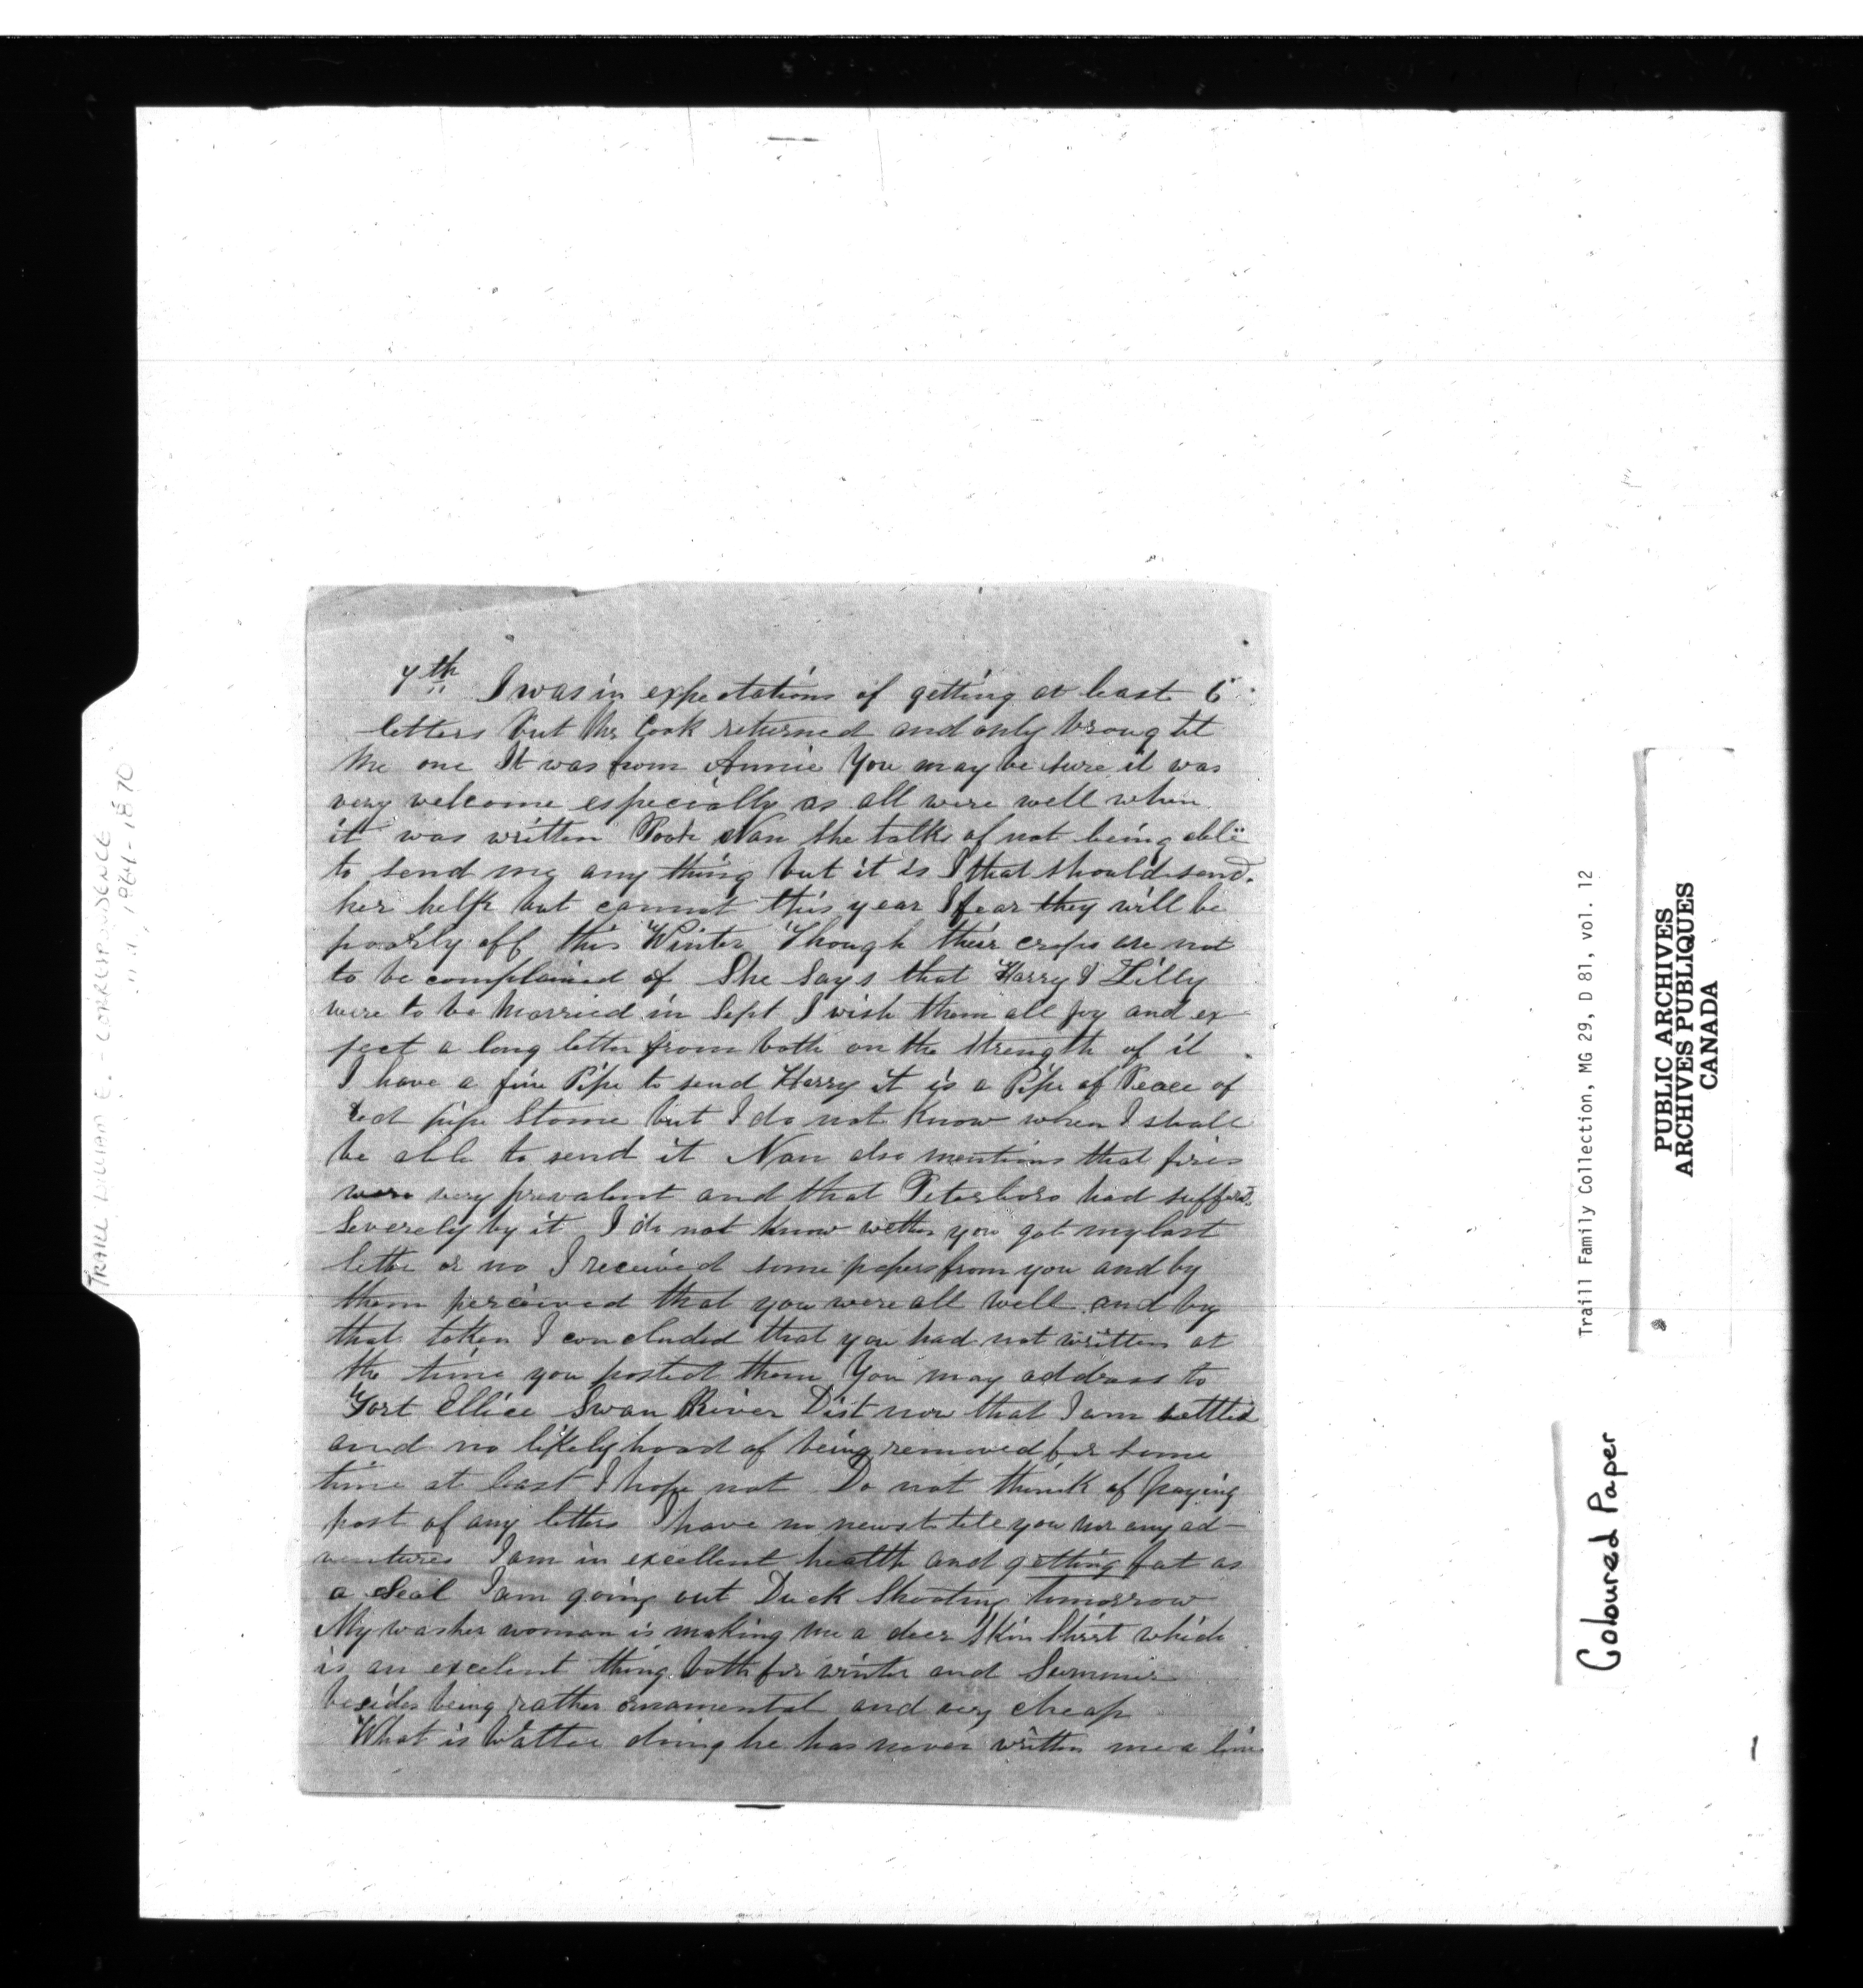 7th I was in expectations of getting at least 6
letters but Mr Cook returned and only brought
me one It was from Annie You may be sure it was
very welcome especially as all were well when
it was written Poor Nan she talks of not being able
to send me any thing but it is I that should send
her help but cannot this year I fear they will be
poorly off this Winter Though their crops are not
to be complained of She says that Harry & Lilly
were to be Married in Sept I wish them all joy and ex-
pect a long letter from both on the strength of it
I have a fine Pipe to send Harry it is a Pipe of Peace of
red pipe Stone but I do not Know when I shall
be able to send it Nan also mentions that fires
were very prevalent and that Peterboro had suffered
severely by it I do not know wether you got my last
letter or no I received some papers from you and by
them perceived that you were all well and by
that token I concluded that you had not written at
the time you posted them You may address to
Fort Ellice Swan River Dist now that I am settled
and no likelyhood of being removed for some
time at least I hope not Do not think of paying
post of any letters I have no news to tell you nor any ad-
ventures I am in excellent health and getting fat as
a Seal I am going out Duck Shooting tomorrow
My washer woman is making me a deer Skin Shirt which
is an excelent thing both for winter and Summer
besides being rather ornamental and very cheap
What is Walter doing he has never written me a line
TRAILL WILLIAM E. - CORRESPONDENCE
1864-1870
Traill Family Collection, MG 29, D 81, vol. 12
PUBLIC ARCHIVES
ARCHIVES PUBLIQUES
CANADA
Coloured Paper